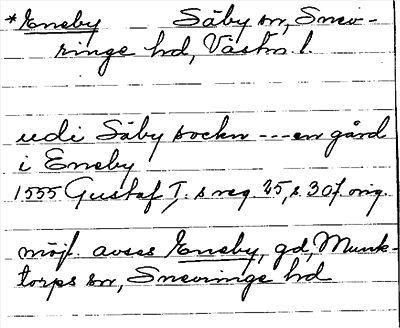 *Eneby Säby sn, Snev-
ringe hd, Västm. l.
udi Säby sockn --- en gård
i Eneby
1555 Gustaf I. s reg. 25, s. 307. orig.
möjl. avses Eneby, gd, Munk-
torps sn, Snevringe hd